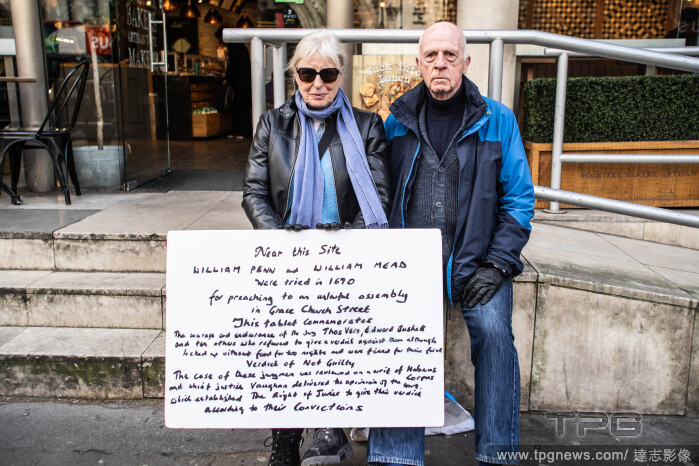 BAKE
MAKE
Near this Site
WILLIAM PENN and WILLIAM MEAD
were tried in 1670
for preaching to an unlawful assembly
in Grace Church Street
This tablet commemorates
The courage and endurance of the Jury Thos Vere, Edward Bushell
and ten others who refused to give a verdict against them although
locked up without food for two nights and were fined for their final
Verdict of Not Guilty
The case of these jurymen was reviewed on a writ of Habeas
and chief justice Vaughan delivered the opinion of the Corpus
court
which established The Right of Juries to give their verdict
according to their Convictions
TPG
www.tpgnews.com/ 達志影像